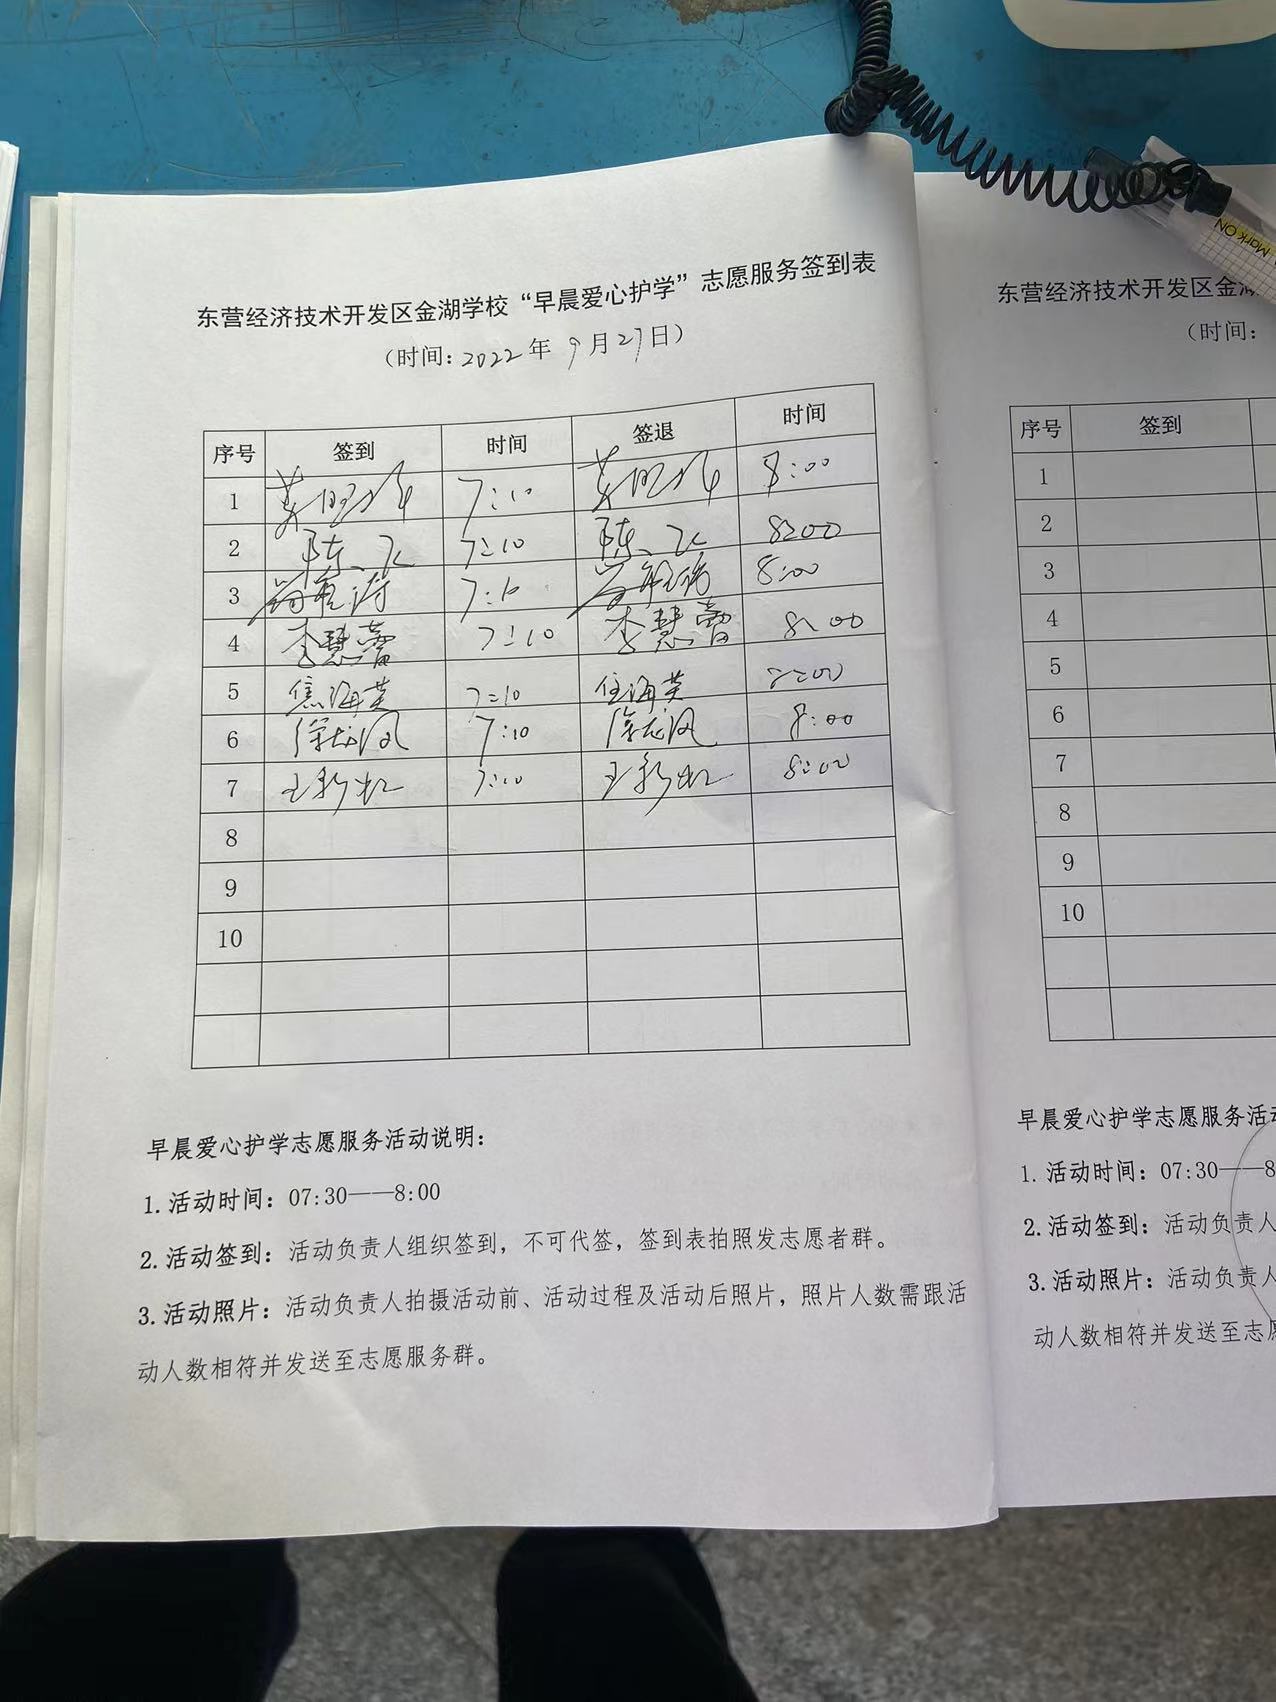 东营经济技术开发区金湖学校“早晨爱心护学”志愿服务签到表
（时间：2022年 9月27日）
序号 签到 时间 签退 时间
1 7:10 8:00
2 陈飞 7:10 陈飞 8:00
3 7:10 8:00
4 李慧蕾 7:10 李慧蕾 8:00
5 焦海英 7:10 焦海英 8:00
6 徐龙凤 7:10 徐龙凤 8:00
7 王新 7:10 王新 8:00
8
9
10
早晨爱心护学志愿服务活动说明：
1.活动时间：07:30——8:00
2.活动签到：活动负责人组织签到，不可代签，签到表拍照发志愿者群。
3.活动照片：活动负责人拍摄活动前、活动过程及活动后照片，照片人数需跟活
动人数相符并发送至志愿服务群。
东营经济技术开发区金
（时间：
序号 签到
1
2
3
4
5
6
7
8
9
10
早晨爱心护学志愿服务活
1.活动时间：07:30——8
2.活动签到：活动负责人
3.活动照片：活动负责人
动人数相符并发送至志
Mark ON